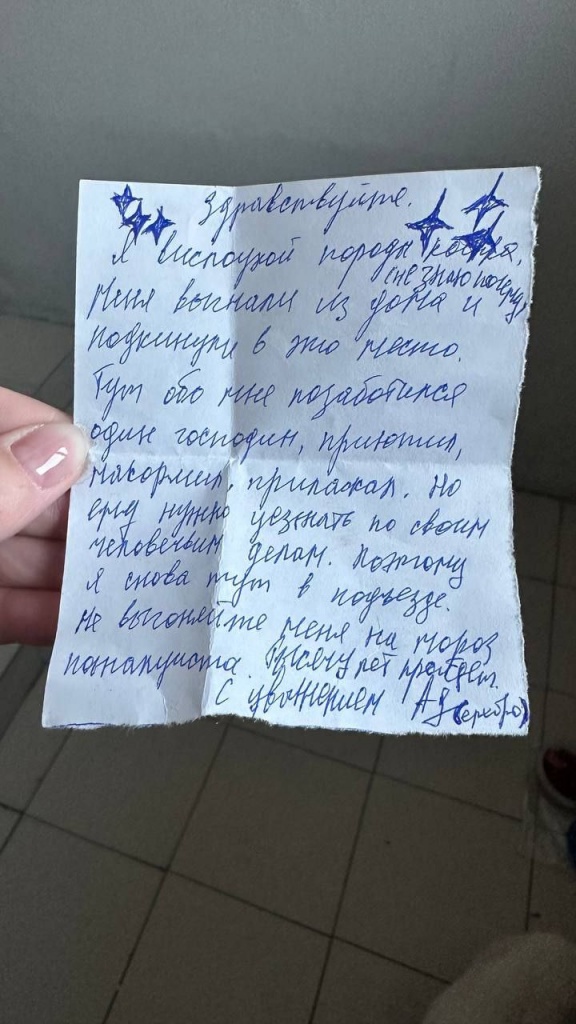 Здравствуйте.
Я вислоухой породы кошка.
(не знаю почему)
Меня выгнали из дома и
подкинули в это место.
Тут обо мне позаботился
один господин, приютил,
накормил, приласкал. Но
ему нужно уезжать по своим
человечьим делам. Поэтому
я снова тут в подъезде.
Не выгоняйте меня на мороз
пожалуйста. Тысячу лет пройдет.
С уважением Ag (серебро)